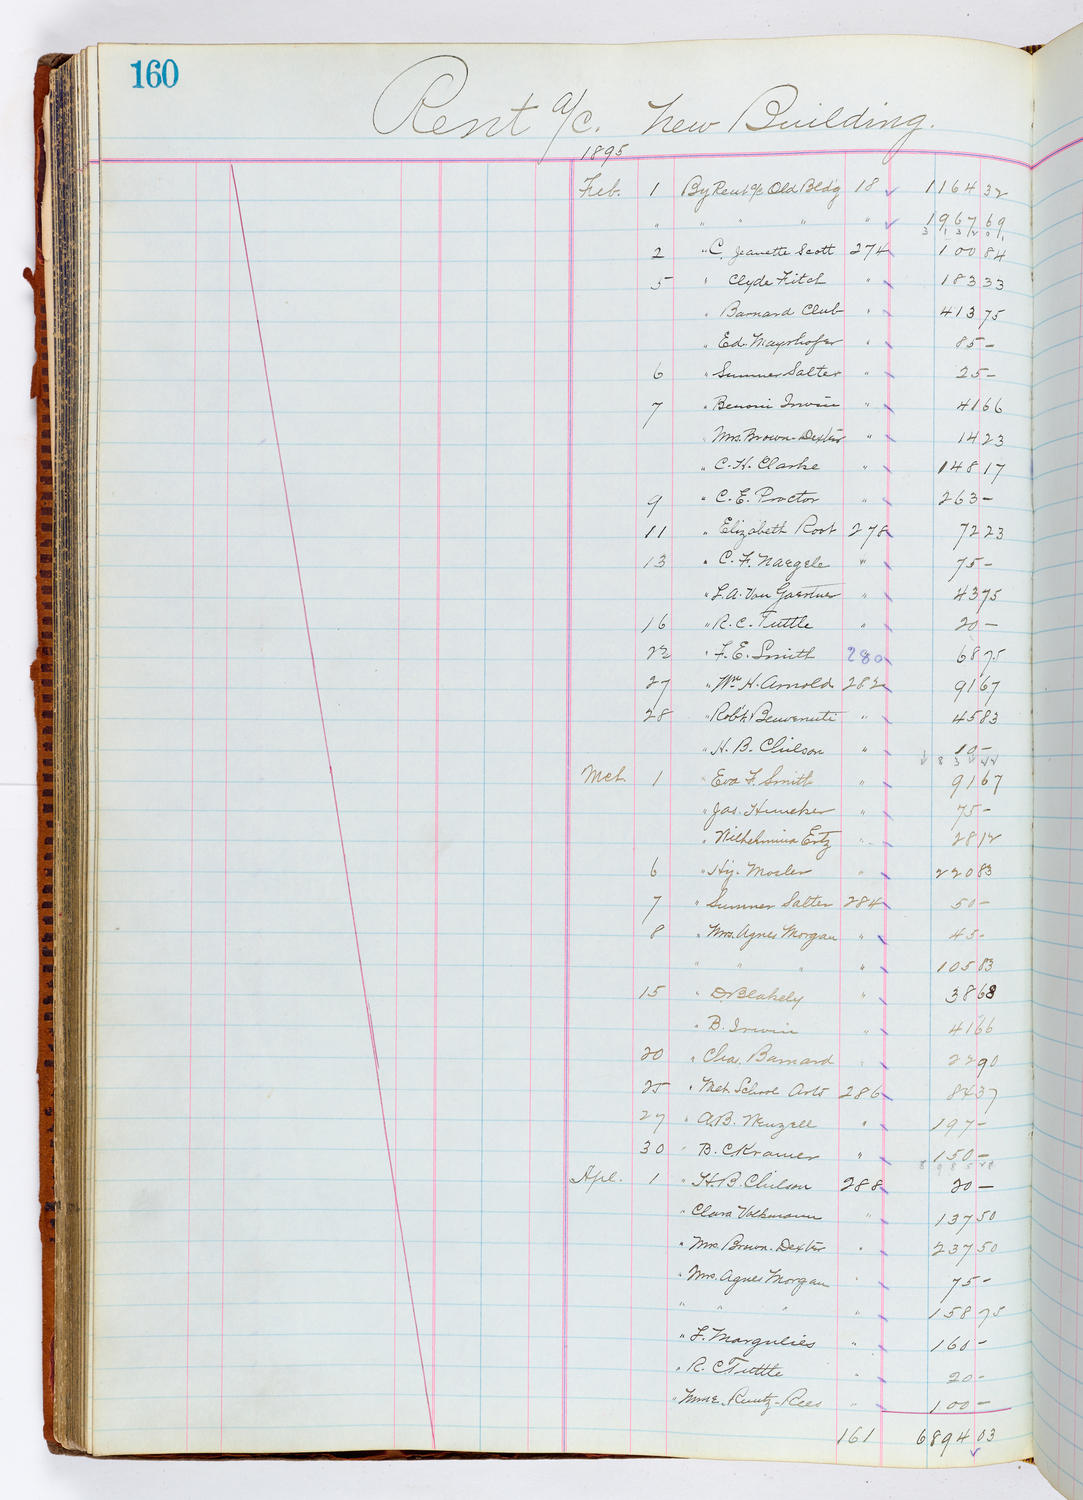 160
Rent a/c. New Building.
1895
Feb. 1 By Rent a/c Old Bldg 18 1164 32
" " " " " 1967 69
3 1 3 2 0 1
2 " C. Jeanette Scott 274 100 84
5 " Clyde Fitch " 183 33
" Barnard Club " 413 75
" Ed. Mayrhofer " 85 -
6 " Sumner Salter " 25 -
7 " Benoni Irwin " 41 66
Mrs. Brown-Dexter " 14 23
" C. H. Clarke " 148 17
9 " C. E. Proctor " 263 -
11 " Elizabeth Root 278 72 23
13 " C. F. Naegele " 75 -
" L. A. Von Gaertner " 43 75
16 " R. C. Tuttle " 20 -
22 " F. E. Smith 280 68 75
27 " Wm H. Arnold 282 91 67
28 " Rob't Benvenuti " 45 83
" H. B. Chilson " 10 -
Mch 1 " Eva F. Smith " 91 67
" Jas. Huneker " 75 -
" Wilhelmina Ertz " 28 12
6 " Hy. Mosler " 220 83
7 " Sumner Salter 284 50 -
8 " Mrs. Agnes Morgan " 45 -
" " " " 105 83
15 " D. Blakely " 38 68
" B. Irwin " 41 66
20 " Chas. Barnard " 22 90
25 " Met. School Arts 286 84 37
27 " A. B. Wenzell " 197 -
30 " B. C. Kramer " 150 -
Apl. 1 " H. B. Chilson 288 20 -
" Clara Volkmann " 137 50
" Mrs. Brown-Dexter " 237 50
" Mrs. Agnes Morgan " 75 -
" " " " 158 75
" L. Margulies " 160 -
" R. C. Tuttle " 20 -
" Mme. Runtz-Rees " 100 -
161 6894 03